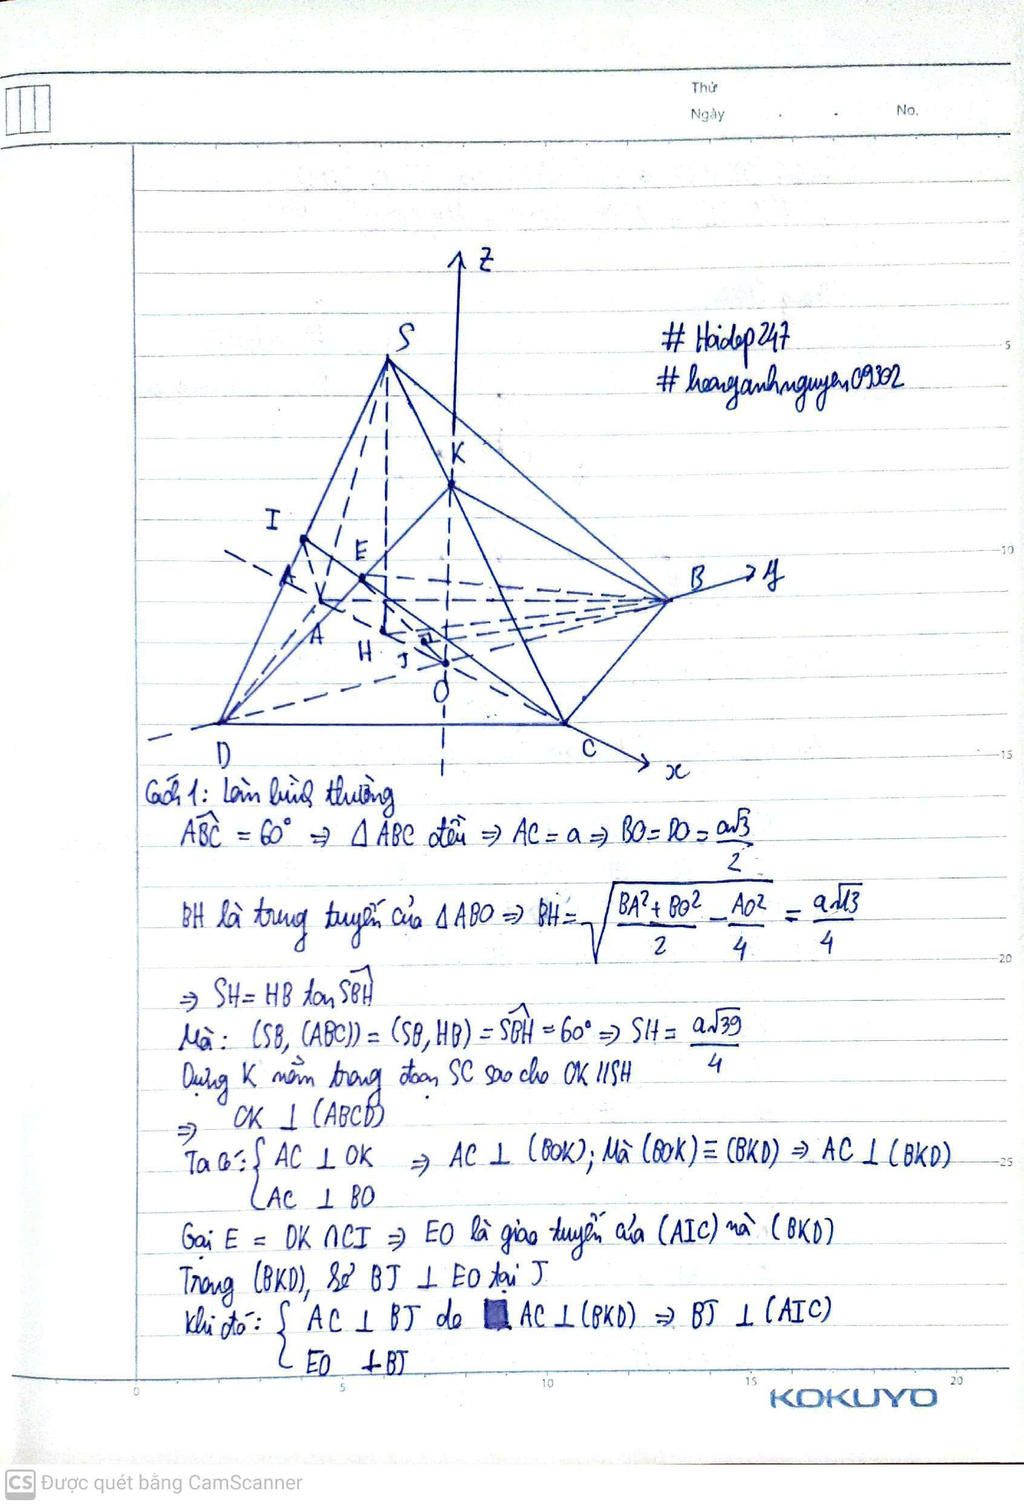 Thứ
Ngày . . No.
z
S
# Hoidap247
# hoanganhnguyen09302
5
K
I
E
10
B y
A
H
J
O
D
C
15
x
Cách 1: Làm bình thường
ABC = 60° ⇒ Δ ABC đều ⇒ AC = a ⇒ BO = DO = a√3/2
BH là trung tuyến của Δ ABO ⇒ BH = √((BA² + BO²)/2 - AO²/4) = a√13/4
20
⇒ SH = HB tan SBH
Mà: (SB, (ABC)) = (SB, HB) = SBH = 60° ⇒ SH = a√39/4
Dựng K nằm trong đoạn SC sao cho OK // SH
⇒ OK ⊥ (ABCD)
Ta có: { AC ⊥ OK ⇒ AC ⊥ (BOK); Mà (BOK) ≡ (BKD) ⇒ AC ⊥ (BKD)
25
AC ⊥ BO
Gọi E = DK ∩ CI ⇒ EO là giao tuyến của (AIC) và (BKD)
Trong (BKD), kẻ BJ ⊥ EO tại J
Khi đó: { AC ⊥ BJ do AC ⊥ (BKD) ⇒ BJ ⊥ (AIC)
EO ⊥ BJ
0 5 10 15 20
KOKUYO
CS Được quét bằng CamScanner